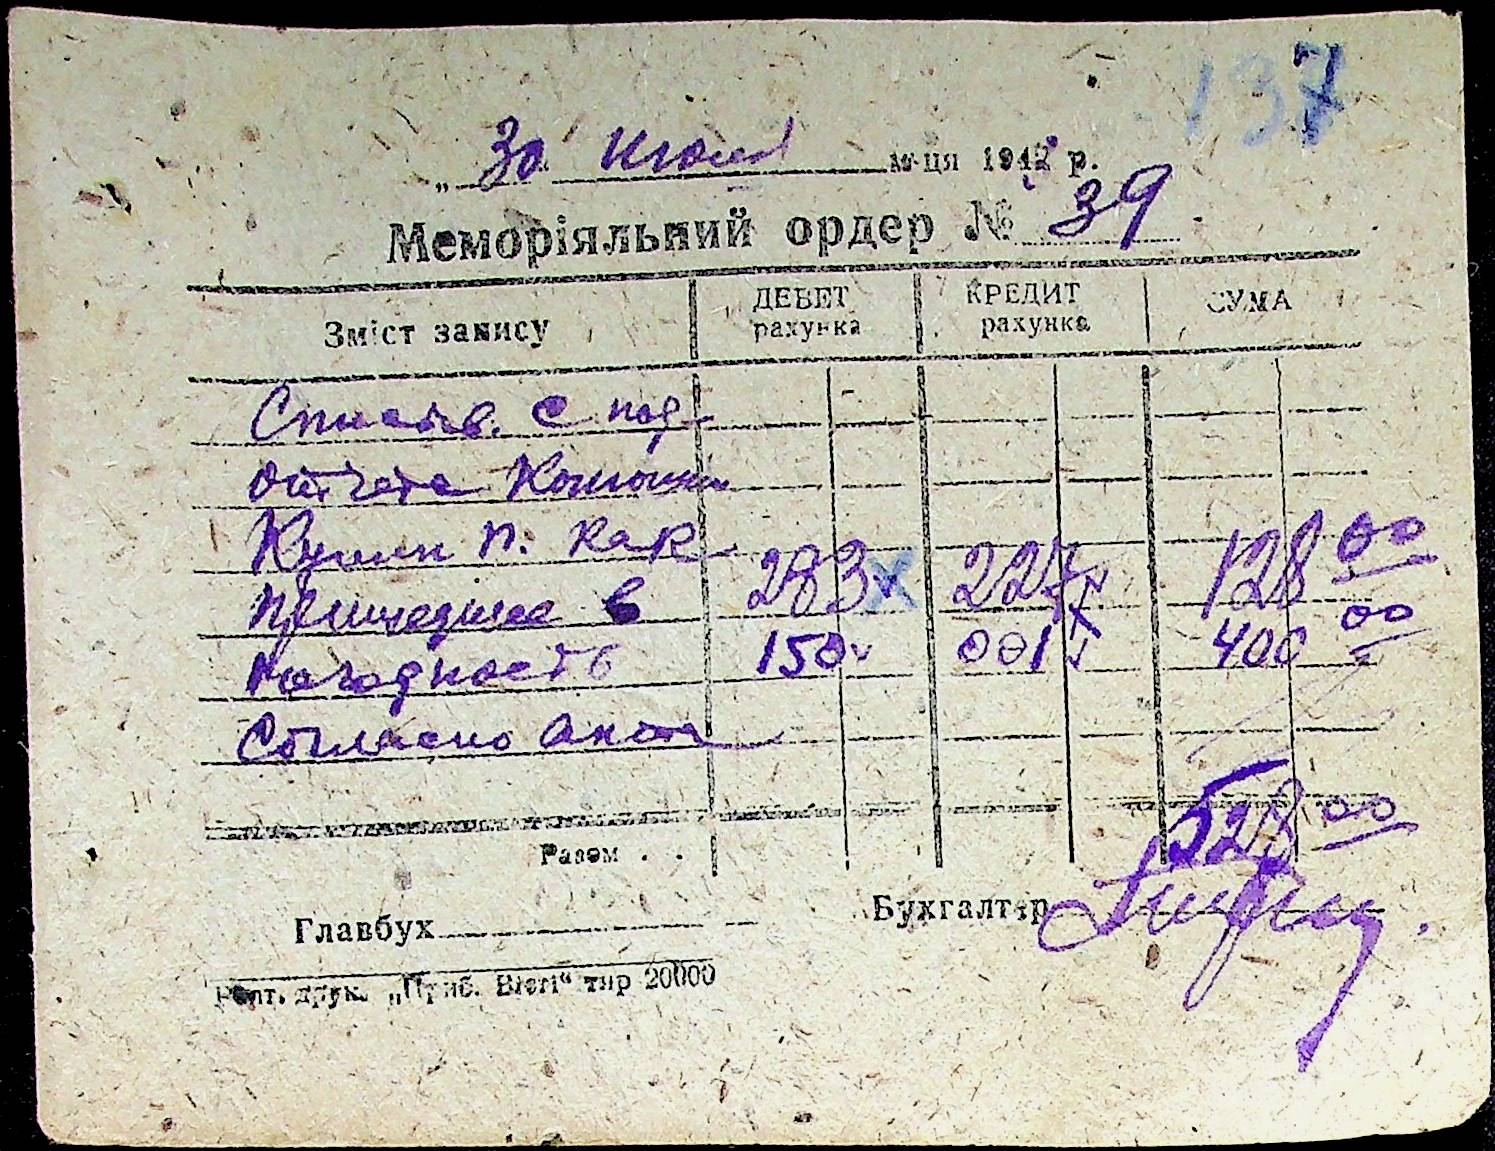 137
„30 июля м-ця 1942 р.
Меморіяльний ордер № 39
Зміст запису ДЕБЕТ рахунка КРЕДИТ рахунка СУМА
с под
отчета
п. как
пришедшее в 283 227 128 00
негодность 150 001 400 00
Согласно акта
528 00
Разом . .
Главбух
Бухгалтер
друк. „Приб. Вісті“ тир 20000